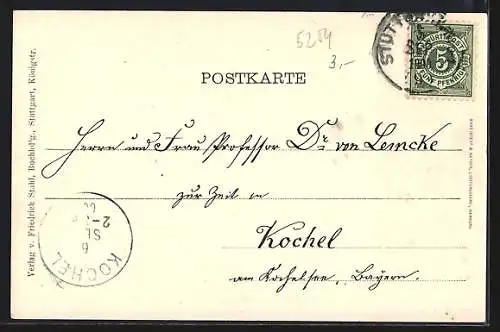 5204
3,-
STUTTGART
WÜRTTBERG
5
FÜNF PFENNIG
POSTKARTE
Herrn und Frau Professor Dr. von Lemcke
zur Zeit in
Kochel
am Kochelsee, Bayern.
Verlag v. Friedrich Stahl, Buchhdlg., Stuttgart, Königstr.
KOCHEL
6
SE
2-